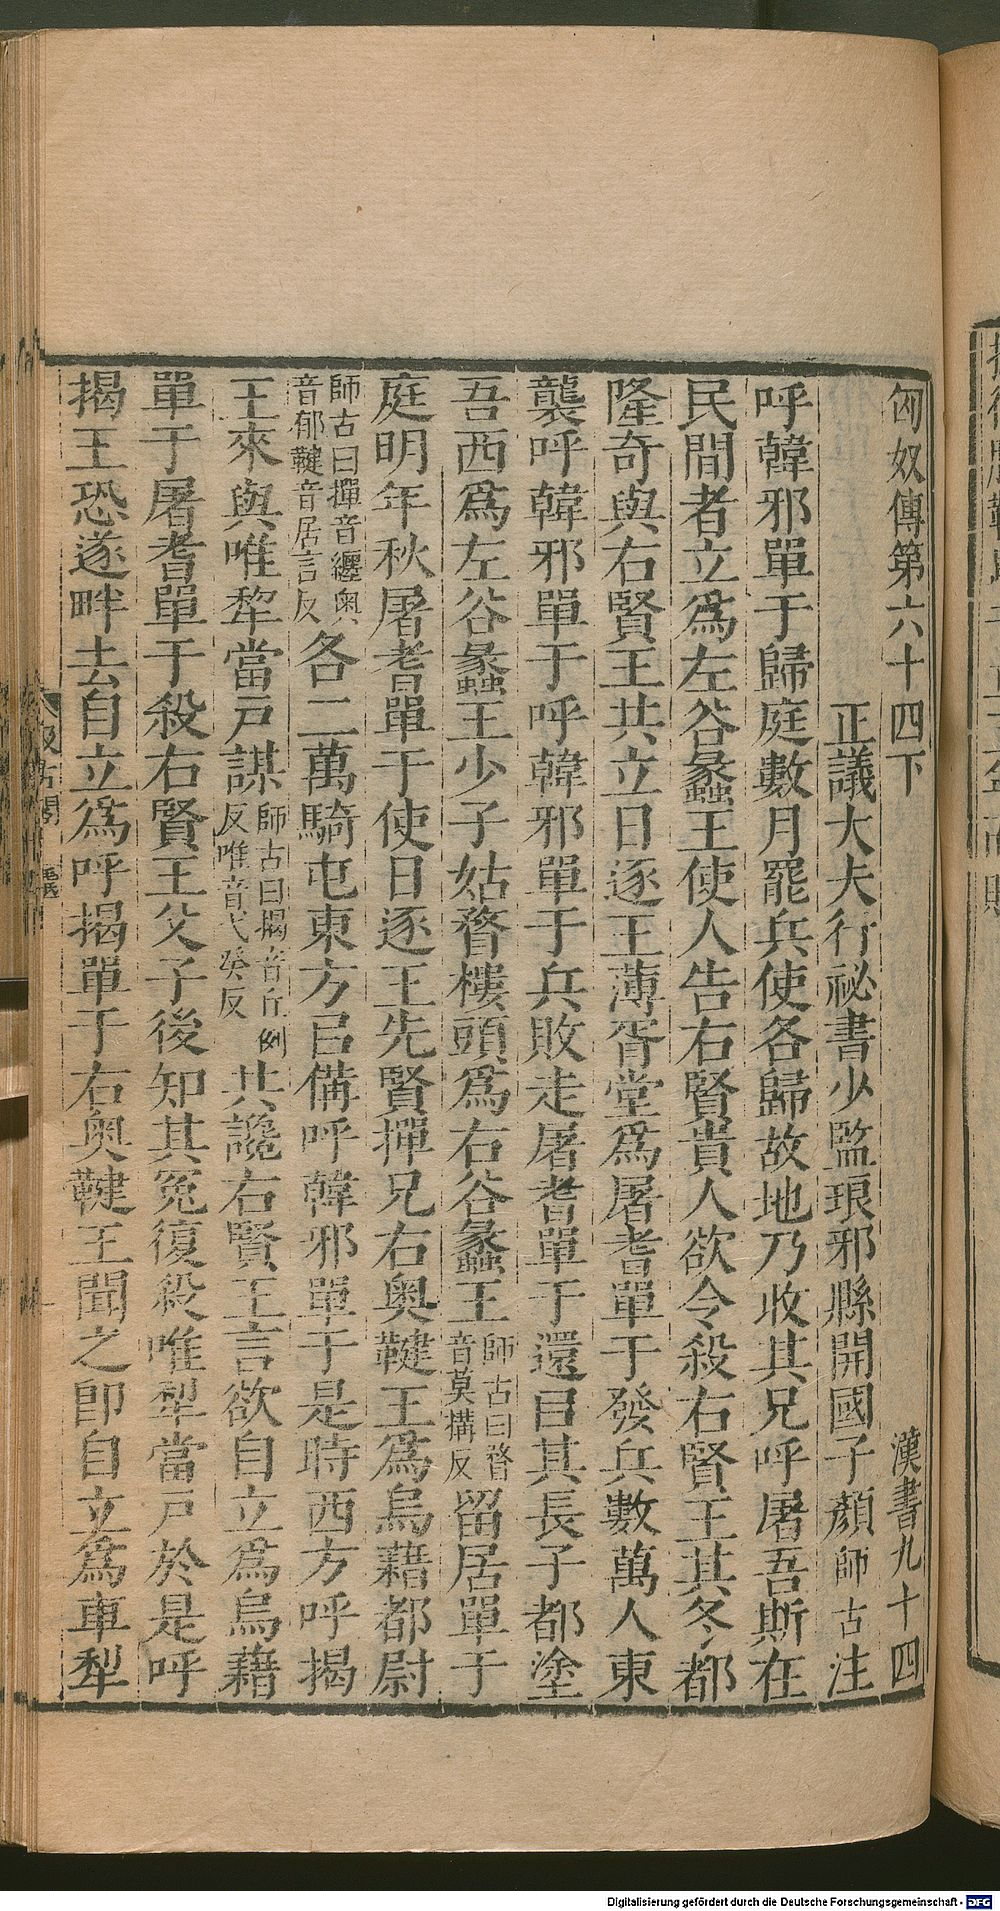 匈奴傳第六十四下　漢書九十四
正議大夫行祕書少監琅邪縣開國子顏師古注
呼韓邪單于歸庭數月罷兵使各歸故地乃收其兄呼屠吾斯在
民間者立爲左谷蠡王使人告右賢貴人欲令殺右賢王其冬都
隆奇與右賢王共立日逐王薄胥堂爲屠耆單于發兵數萬人東
襲呼韓邪單于呼韓邪單于兵敗走屠耆單于還㠯其長子都塗
吾西爲左谷蠡王少子姑瞀樓頭爲右谷蠡王師古曰瞀音莫搆反留居單于
庭明年秋屠耆單于使日逐王先賢撣兄右奧鞬王爲烏藉都尉
師古曰撣音纏奧音郁鞬音居言反各二萬騎屯東方㠯備呼韓邪單于是時西方呼揭
王來與唯犂當戶謀師古曰揭音丘例反唯音弋癸反共讒右賢王言欲自立爲烏藉
單于屠耆單于殺右賢王父子後知其冤復殺唯犂當戶於是呼
揭王恐遂畔去自立爲呼揭單于右奧鞬王聞之卽自立爲車犂
Digitalisierung gefördert durch die Deutsche Forschungsgemeinschaft - DFG